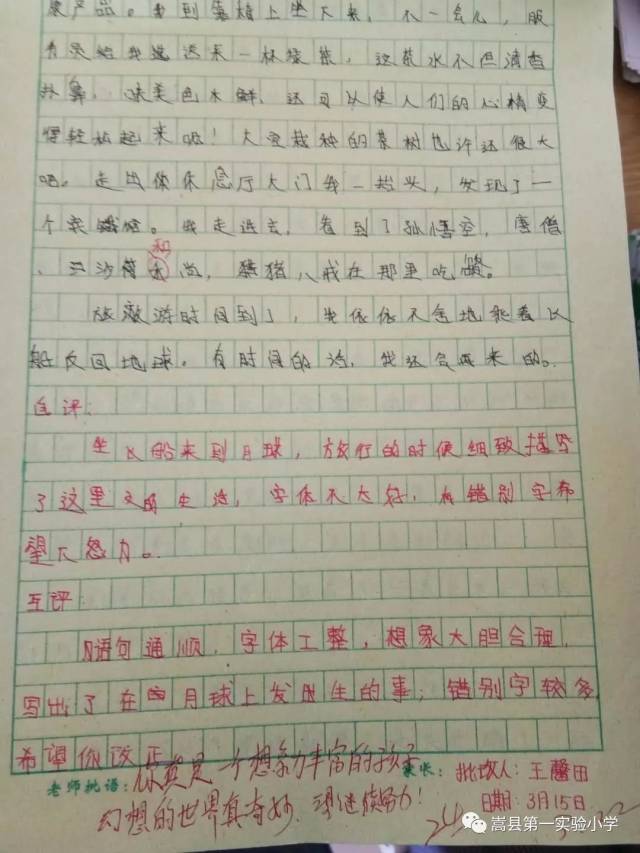 展产品。来到靠椅上坐下来，不一会儿，服
务员给我端送来一杯绿茶，这茶水不但清香
扑鼻，味美色木鲜，还可以使人们的心情变
得轻松起来呢！大受栽种的茶树也许还很大
吧。走出休休息厅大门我一抬头，发现了一
个我走进去，看到了孙悟空，唐僧
、沙和尚，猪八戒在那里吃
旅游时间到了，我依依不舍地乘着飞
船反回地球。有时间的话，我还会再来的。
自评：
坐飞船来到月球，旅行的时候细致描写
了这里文明生活，字体不大好，有错别字希
望下怒力。
互评
语句通顺，字体工整，想象大胆合理，
写出了在月球上发生的事，错别字较多，
希望你改正
老师批语：你真是一个想象力丰富的孩子
幻想的世界真奇妙，望继续努力！
家长：批改人：王馨田
日期：3月15日
嵩县第一实验小学